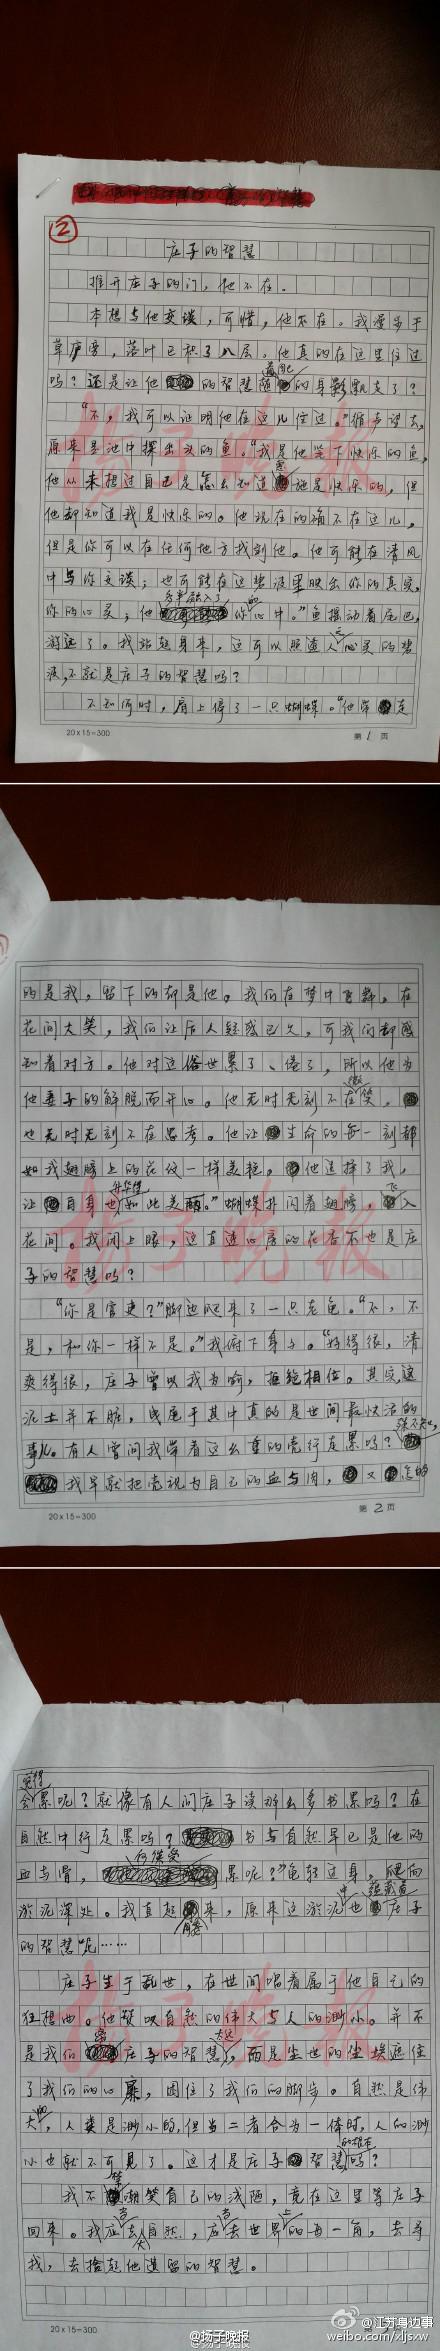 ②
庄子的智慧
推开庄子的门，他不在。
本想与他交谈，可惜，他不在。我漫步于
草庐旁，落叶已积了八层。他真的在这里住过
吗？还是让他的智慧随着自己的身影飘走了？
“不，我可以证明他在这儿住过。”循声望去，
原来是池中探出头的鱼。“我是他笔下快乐的鱼，
他从未想过自己是怎么知道鱼是快乐的，但
他却知道我是快乐的。他现在的确不在这儿，
但是你可以在任何地方找到他。他可能在清风
中与你交谈；也可能在这碧波里映出你的真实，
你的心灵；他早融入了你的心中。”鱼摆动着尾巴，
游远了。我站起身来，这可以照透人之心灵的碧
波，不就是庄子的智慧吗？
不知何时，肩上停了一只蝴蝶。“他带走
20×15=300
第1页
的是我，留下的却是他。我们在梦中飞舞，在
花间大笑，我们让后人疑惑已久，可我们却感
知着对方。他对这俗世累了、倦了，所以他为
他妻子的解脱而开心。他无时无刻不在微笑，
也无时无刻不在思考。他让生命的每一刻都
如我翅膀上的花纹一样美艳。他选择了我，
让自身也如此美丽。”蝴蝶扑闪着翅膀，飞入
花间。我闭上眼，这直透心房的花香不也是庄
子的智慧吗？
“你是官吏？”脚边爬来了一只老龟。“不，不
是，和你一样不是。”我俯下身子。“好得很，清
爽得很，庄子曾以我为喻，拒绝相位。其实，这
泥土并不脏，曳尾于其中真的是世间最快活的
事儿。有人曾问我带着这么重的壳行走累吗？殊不知，
我早就把壳视为自己的血与肉，又怎的
20×15=300
第2页
会觉得累呢？就像有人问庄子读那么多书累吗？在
自然中行走累吗？书与自然早已是他的
血与骨，何谈受累呢？”龟转过身，爬向
淤泥深处。我直起腰来，原来这淤泥中也蕴藏着庄子
的智慧呢……
庄子生于乱世，在世间唱着属于他自己的
狂想曲。他赞叹自然的伟大与人的渺小。并不
是我们离庄子的智慧太远，而是尘世的尘埃遮住
了我们的心扉，困住了我们的脚步。自然是伟
大的，人类是渺小的，但当二者合为一体时，人的渺
小也就不可见了。这才是庄子智慧的根本吗？
我不禁嘲笑自己的浅陋，竟在这里等庄子
回来。我应去大自然，应去世界上的每一角，去寻
找，去拾起他遗留的智慧。
20×15=300
扬子晚报
扬子晚报
扬子晚报
@扬子晚报
@江苏身边事
weibo.com/xljsxw